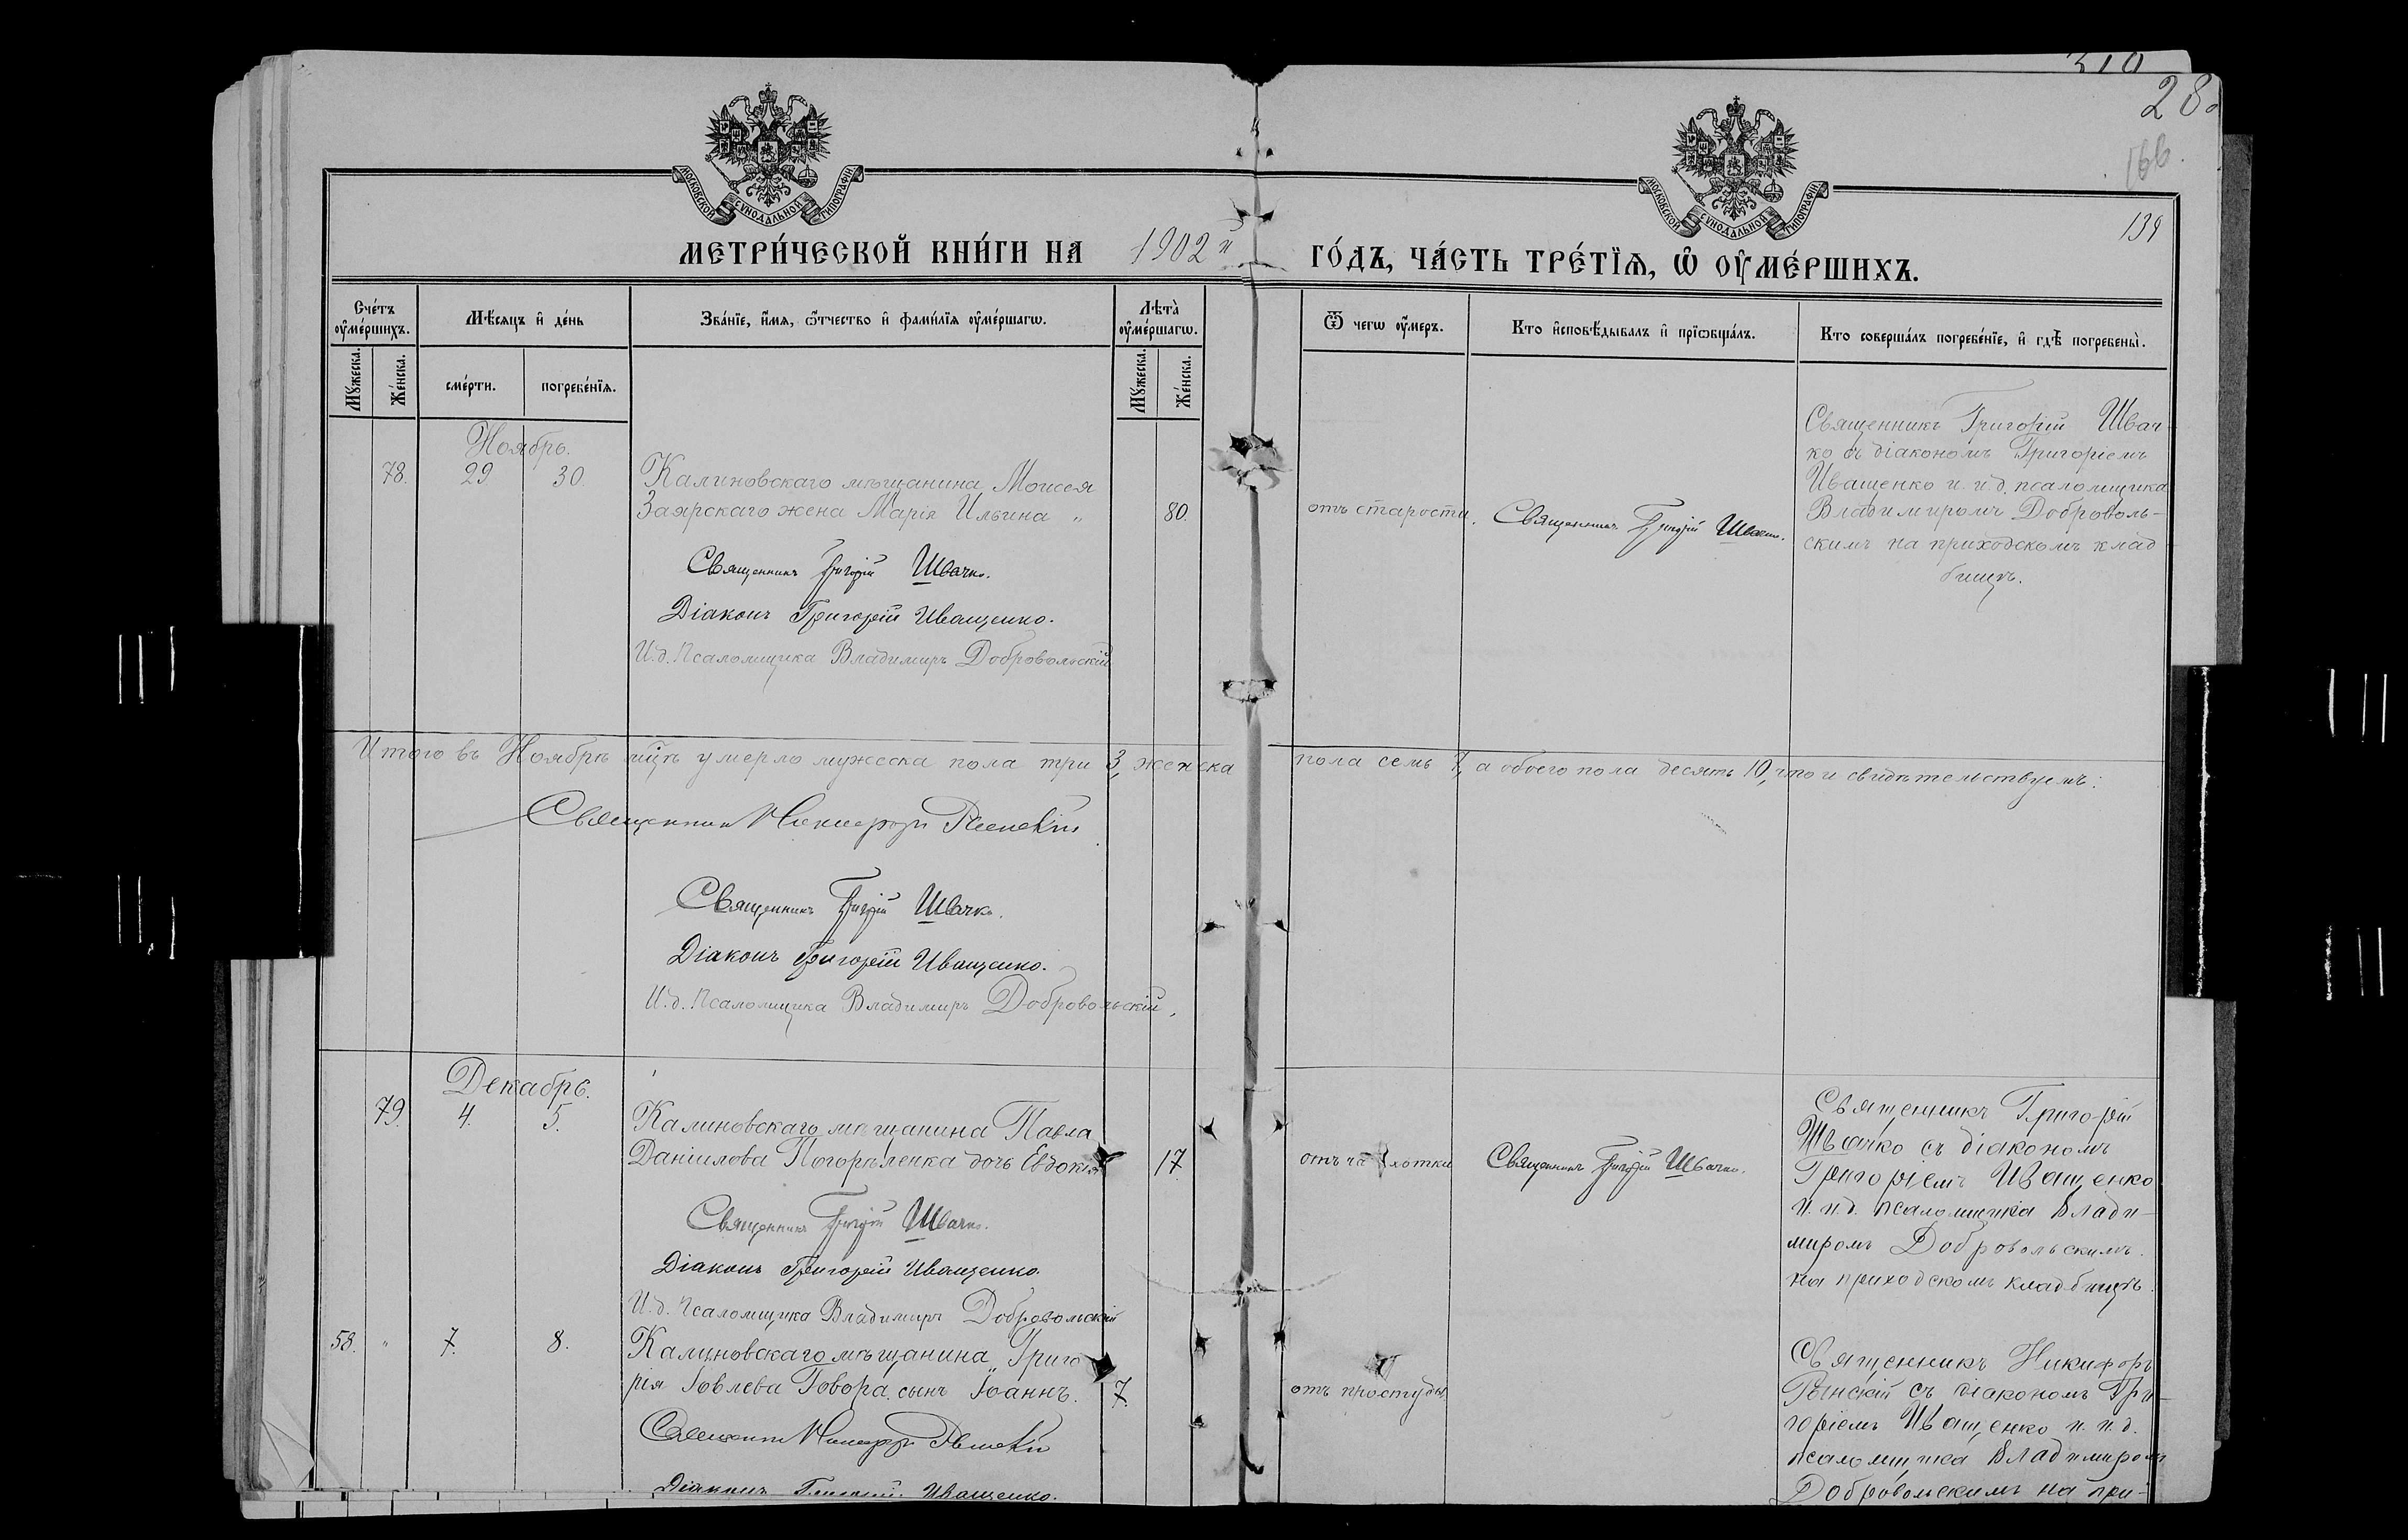 310
280
166.
139
МОСКОВСКОЙ СУНОДАЛЬНОЙ ТИПОГРАФІИ
МОСКОВСКОЙ СУНОДАЛЬНОЙ ТИПОГРАФІИ
МЕТРИ́ЧЕСКОЙ КНИ́ГИ НА 1902 й ГО́ДЪ, ЧА́СТЬ ТРЕ́ТЇѦ, Ѡ ОУ҆МЕ́РШИХЪ.
Сче́тъ оу҆ме́ршихъ.
Мѣ́сяцъ и҆ де́нь
Зва́нїе, и҆́мя, ѻ҆́тчество и҆ фами́лїя оу҆ме́ршагѡ.
Лѣта̀ оу҆ме́ршагѡ.
Ѿ чегѡ оу҆́меръ.
Кто и҆сповѣ́дывалъ и҆ прїѡбща́лъ.
Кто соверша́лъ погребе́нїе, и҆ гдѣ̀ погребены̀.
Мꙋ́жеска.
Же́нска.
сме́рти.
погребе́нїя.
Мꙋ́жеска.
Же́нска.
Ноябрь.
78. 29 30. Калиновскаго мѣщанина Моисея
Заярскаго жена Марія Ильина „ 80.
Священникъ Григорій Швачко.
Діаконъ Григорій Иващенко.
И.д. Псаломщика Владимиръ Добровольскій
отъ старости.
Священникъ Григорій Швачко.
Священникъ Григорій Швач-
ко съ діакономъ Григоріемъ
Иващенко и и.д. псаломщика
Владимиромъ Доброволь-
скимъ на приходскомъ клад
бищѣ.
Итого въ Ноябрѣ мцѣ умерло мужеска пола три 3, женска пола семь 7, а обоего пола десять 10, что и свидѣтельствуемъ:
Священникъ Никифоръ
Священникъ Григорій Швачко.
Діаконъ Григорій Иващенко.
И.д. Псаломщика Владимиръ Добровольскій.
Декабрь.
79. 4. 5. Калиновскаго мѣщанина Павла
Даніилова Погорѣленка дочь Евдокія 17.
Священникъ Григорій Швачко.
Діаконъ Григорій Иващенко.
И.д. Псаломщика Владимиръ Добровольскій
отъ чахотки
Священникъ Григорій Швачко.
Священникъ Григорій
Швачко съ діакономъ
Григоріемъ Иващенко
и и.д. псаломщика Влади-
миромъ Добровольскимъ
на приходскомъ кладбищѣ.
58. „ 7. 8. Калиновскаго мѣщанина Григо
рія Іовлева Говора сынъ Іоаннъ. 7.
Священникъ Никифоръ
Діаконъ Григорій Иващенко.
отъ простуды
Священникъ Никифоръ
съ діакономъ Гри-
горіемъ Иващенко и и.д.
псаломщика Владимиромъ
Добровольскимъ на при-